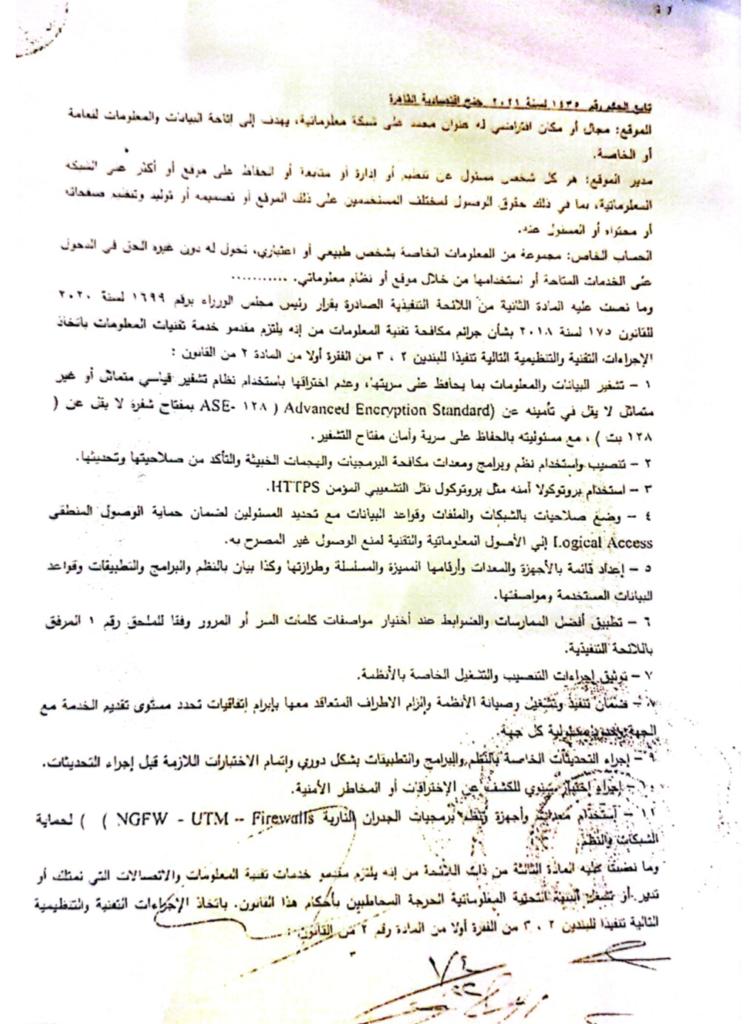 تابع الحكم رقم ١٤٣٥ لسنة ٢٠٢١ جنح اقتصادية القاهرة
الموقع: مجال أو مكان افتراضي له عنوان محدد على شبكة معلوماتية، يهدف إلى إتاحة البيانات والمعلومات للعامة
أو الخاصة.
مدير الموقع: هر كل شخص مسئول عن تنظيم أو إدارة أو متابعة أو الحفاظ على موقع أو أكثر على الشبكة
المعلوماتية، بما في ذلك حقوق الوصول لمختلف المستخدمين على ذلك الموقع أو تصميمه أو توليد وتنظيم صفحاته
أو محتواه أو المسئول عنه.
الحساب الخاص: مجموعة من المعلومات الخاصة بشخص طبيعي أو اعتباري، تخول له دون غيره الحق في الدخول
على الخدمات المتاحة أو استخدامها من خلال موقع أو نظام معلوماتي. ...........
وما نصت عليه المادة الثانية من اللائحة التنفيذية الصادرة بقرار رئيس مجلس الوزراء برقم ١٦٩٩ لسنة ٢٠٢٠
للقانون ١٧٥ لسنة ٢٠١٨ بشأن جرائم مكافحة تقنية المعلومات من إنه يلتزم مقدمو خدمة تقنيات المعلومات باتخاذ
الإجراءات التقنية والتنظيمية التالية تنفيذا للبندين ٢ ، ٣ من الفقرة أولا من المادة ٢ من القانون :
١ – تشفير البيانات والمعلومات بما يحافظ على سريتها، وعدم اختراقها باستخدام نظام تشفير قياسي متماثل أو غير
متماثل لا يقل في تأمينه عن (ASE- ١٢٨ ) Advanced Encryption Standard بمفتاح شفرة لا يقل عن (
١٢٨ بت ) ، مع مسئوليته بالحفاظ على سرية وأمان مفتاح التشفير.
٢ – تنصيب واستخدام نظم وبرامج ومعدات مكافحة البرمجيات والهجمات الخبيثة والتأكد من صلاحيتها وتحديثها.
٣ – استخدام بروتوكولا آمنه مثل بروتوكول نقل التشعيبي المؤمن HTTPS.
٤ – وضع صلاحيات بالشبكات والملفات وقواعد البيانات مع تحديد المسئولين لضمان حماية الوصول المنطقي
Logical Access إلي الأصول المعلوماتية والتقنية لمنع الوصول غير المصرح به.
٥ – إعداد قائمة بالأجهزة والمعدات وأرقامها المميزة والمسلسلة وطرازتها وكذا بيان بالنظم والبرامج والتطبيقات وقواعد
البيانات المستخدمة ومواصفتها.
٦ – تطبيق أفضل الممارسات والضوابط عند أختيار مواصفات كلمات السر أو المرور وفقا للملحق رقم ١ المرفق
باللائحة التنفيذية.
٧ – توثيق إجراءات التنصيب والتشغيل الخاصة بالأنظمة.
٨ – ضمان تنفيذ وتشغيل وصيانة الأنظمة وإلزام الاطراف المتعاقد معها بإبرام إتفاقيات تحدد مستوى تقديم الخدمة مع
الجهة وحدود مسئولية كل جهة.
٩ – إجراء التحديثات الخاصة بالنظم والبرامج والتطبيقات بشكل دوري وإتمام الاختبارات اللازمة قبل إجراء التحديثات.
١٠ – إجراء إختبار سنوي للكشف عن الإختراقات أو المخاطر الأمنية.
١١ – إستخدام معدات وأجهزة ونظم برمجيات الجدران النارية NGFW - UTM -- Firewalls ) ( لحماية
الشبكات والنظم.
وما نصت عليه المادة الثالثة من ذات اللائحة من إنه يلتزم مقدمو خدمات تقنية المعلومات والاتصالات التي تمتلك أو
تدير أو تشغل البنية التحتية المعلوماتية الحرجة المخاطبين بأحكام هذا القانون. باتخاذ الإجراءات التقنية والتنظيمية
التالية تنفيذا للبندين ٢ ، ٣ من الفقرة أولا من المادة رقم ٢ من القانون :
٣